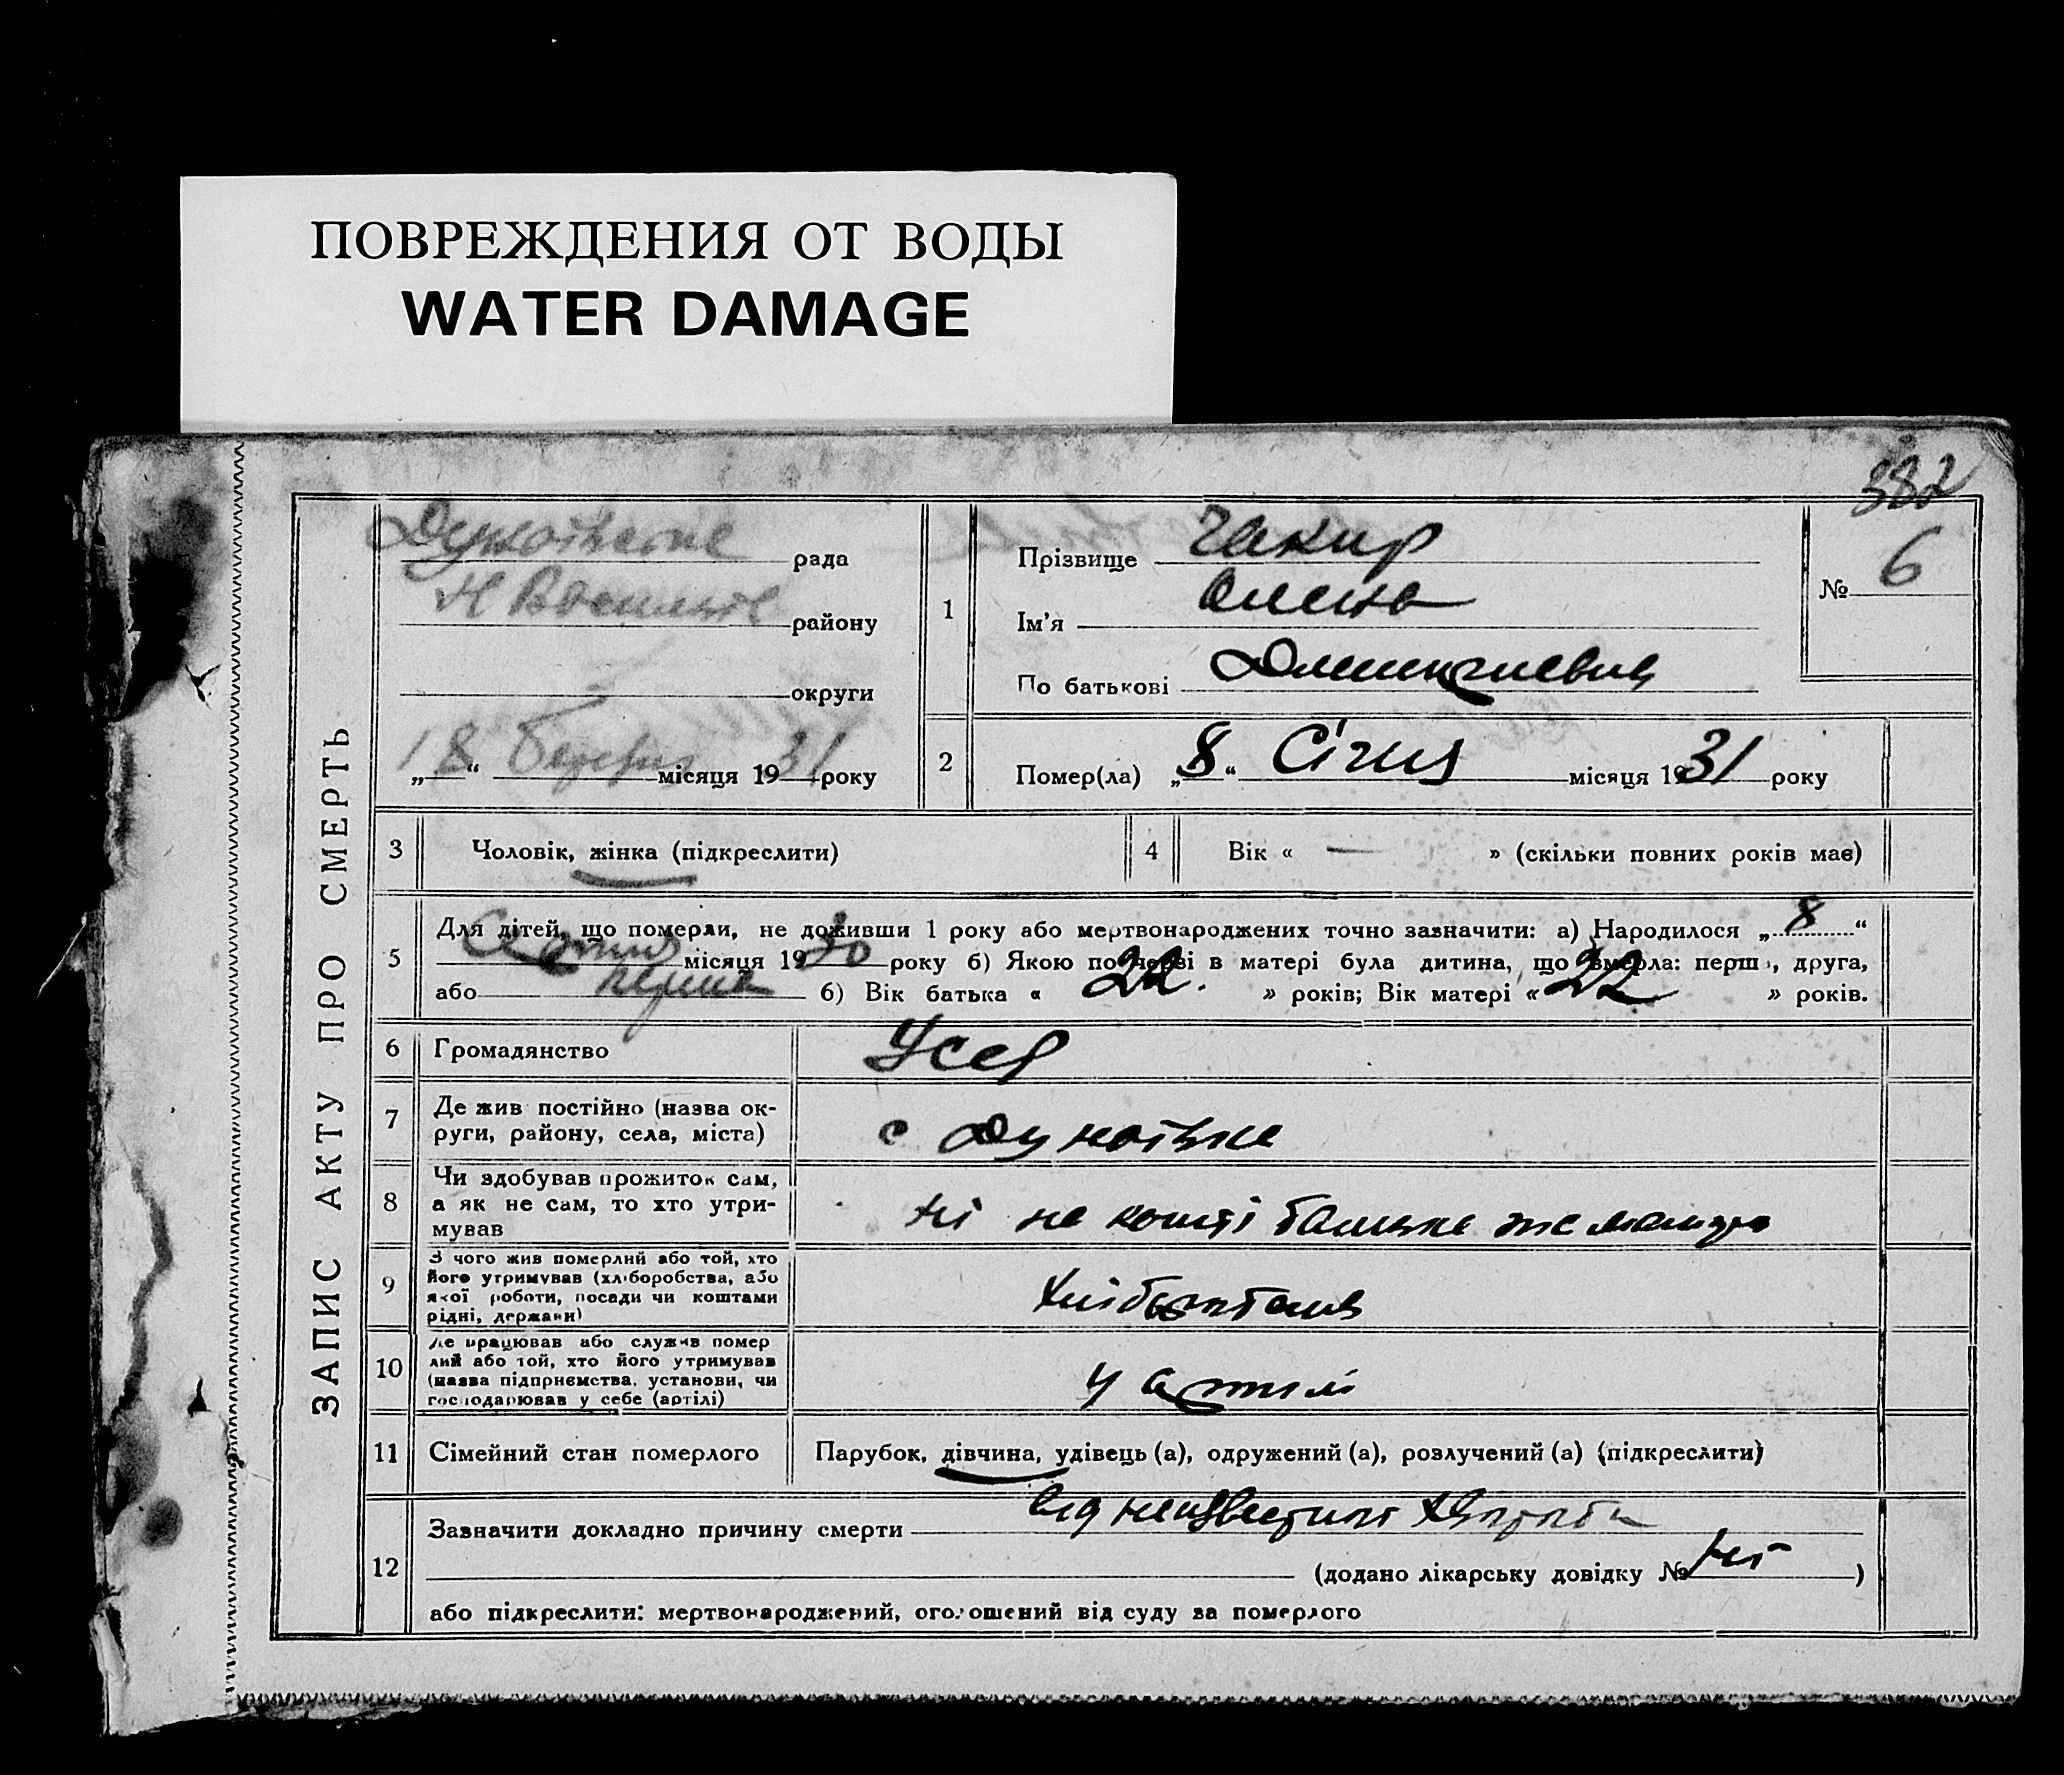 ПОВРЕЖДЕНИЯ ОТ ВОДЫ
WATER DAMAGE
382
ЗАПИС АКТУ ПРО СМЕРТЬ
рада
району
округи
„18“ березня місяця 1931 року
1
Прізвище Чакир
Ім'я Олена
По батькові
№ 6
2
Помер(ла) „8“ Січня місяця 1931 року
3
Чоловік, жінка (підкреслити)
4
Вік « — » (скільки повних років має)
5
Для дітей, що померли, не доживши 1 року або мертвонароджених точно зазначити: а) Народилося „8“
місяця 1930 року б) Якою по черві в матері була дитина, що вмерла: перш , друга,
або перша б) Вік батька « 22. » років; Вік матері « 22 » років.
6
Громадянство Усер
7
Де жив постійно (назва ок-
руги, району, села, міста)
с
8
Чи здобував прожиток сам,
а як не сам, то хто утри-
мував
ні на кошті батька
9
З чого жив померлий або той, хто
його утримував (хліборобства, або
якої роботи, посади чи коштами
рідні, держави)
10
Де працював або служив помер
лий або той, хто його утримував
(назва підприємства, установи, чи
господарював у себе (артілі)
у артілі
11
Сімейний стан померлого
Парубок, дівчина, удівець (а), одружений (а), розлучений (а) (підкреслити)
12
Зазначити докладно причину смерти від
(додано лікарську довідку № ні )
або підкреслити: мертвонароджений, оголошений від суду за померлого